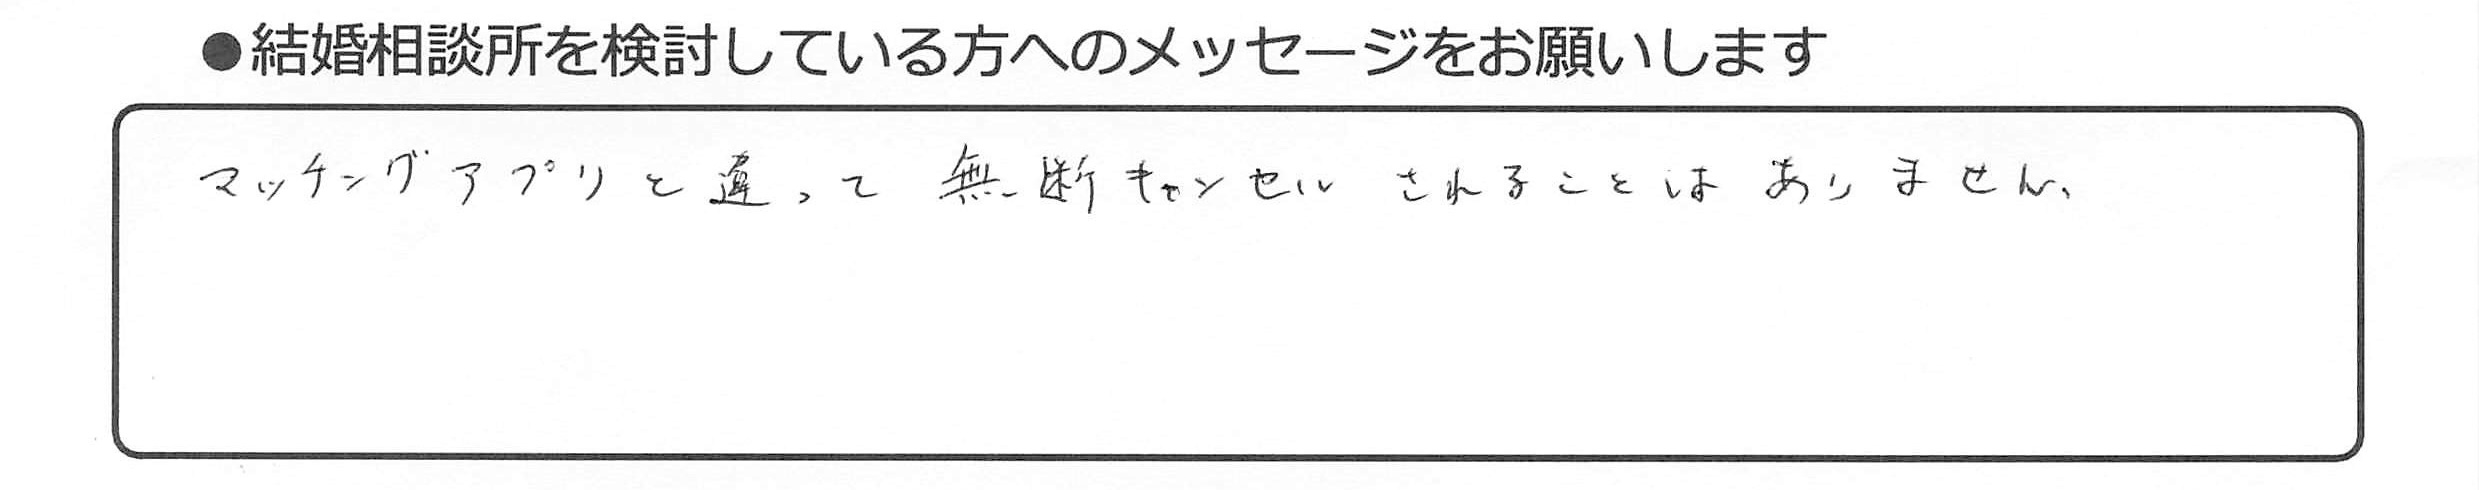 ●結婚相談所を検討している方へのメッセージをお願いします
マッチングアプリと違って無断キャンセルされることはありません、